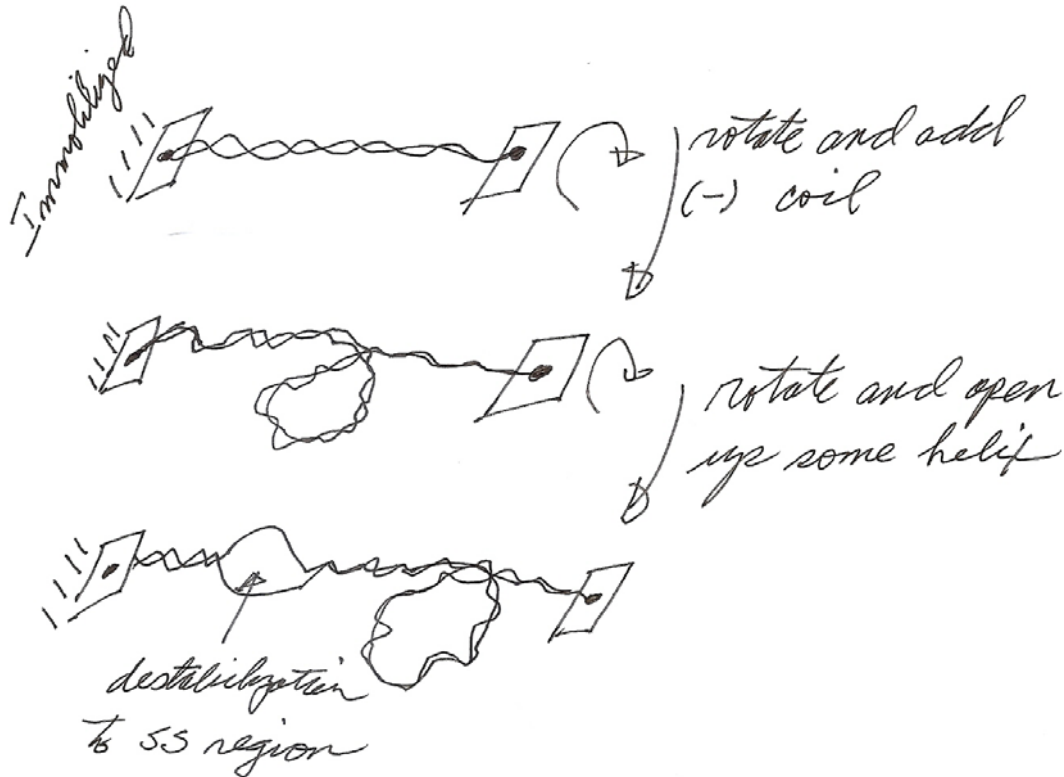 Immobilized
rotate and add
(-) coil
rotate and open
up some helix
destabilization
to ss region